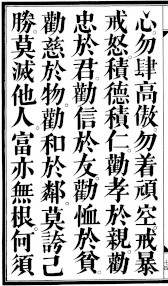 心勿肆高傲勿着頑空戒暴
戒怒積德積仁勸孝於親勸
忠於君勸信於友勸恤於貧
勸慈於物勸和於鄰莫誇己
勝莫滅他人富亦無根何須